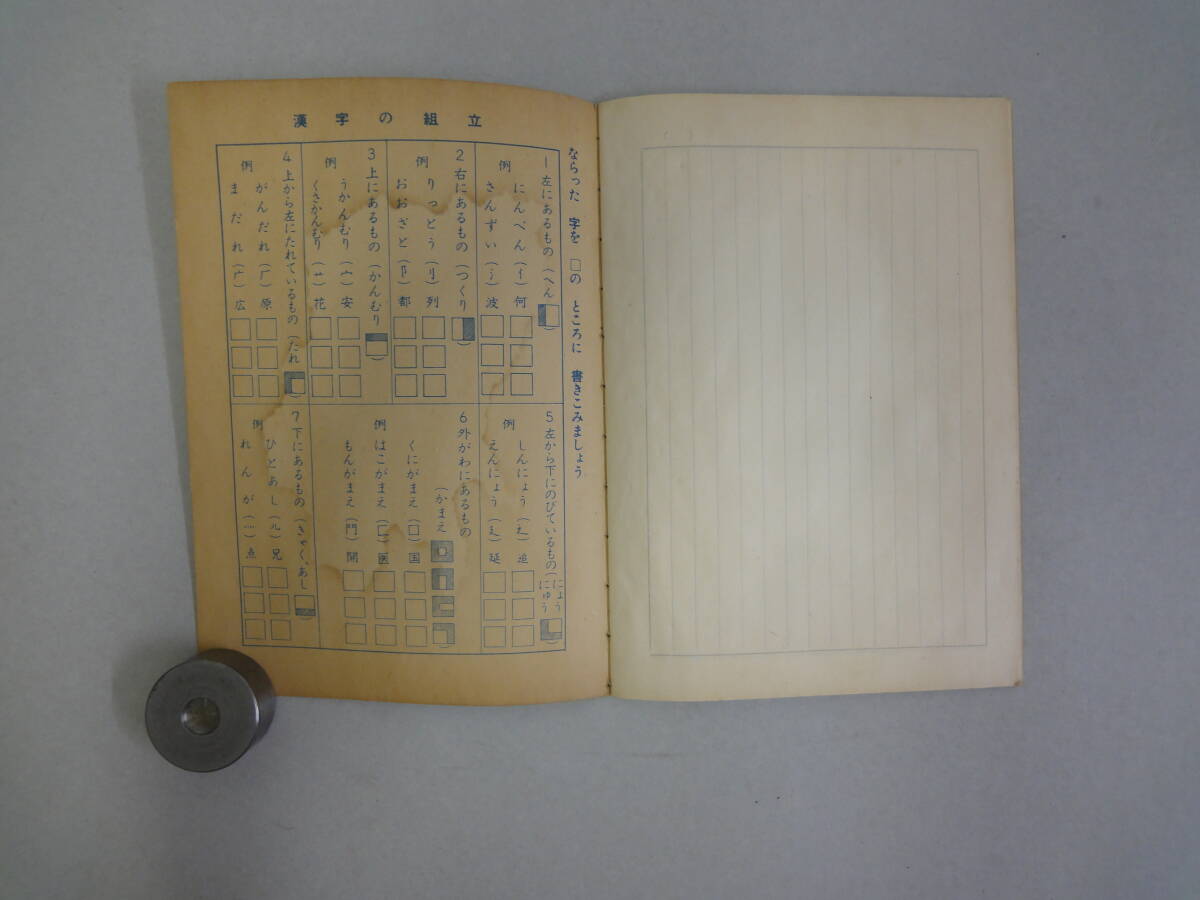 漢字の組立
ならった 字を □の ところに 書きこみましょう
1 左にあるもの(へん)
例
にんべん(亻)何
さんずい(氵)波
2 右にあるもの(つくり)
例
りっとう(刂)列
おおざと(阝)都
3 上にあるもの(かんむり)
例
うかんむり(宀)安
くさかんむり(艹)花
4 上から左にたれているもの(たれ)
例
がんだれ(厂)原
まだれ(广)広
5 左から下にのびているもの(にょう にゅう)
例
しんにょう(辶)进
えんにょう(廴)延
6 外がわにあるもの
(かまえ)
例
くにがまえ(囗)国
はこがまえ(匚)医
もんがまえ(門)開
7 下にあるもの(きゃく、あし)
例
ひとあし(儿)兄
れんが(灬)点